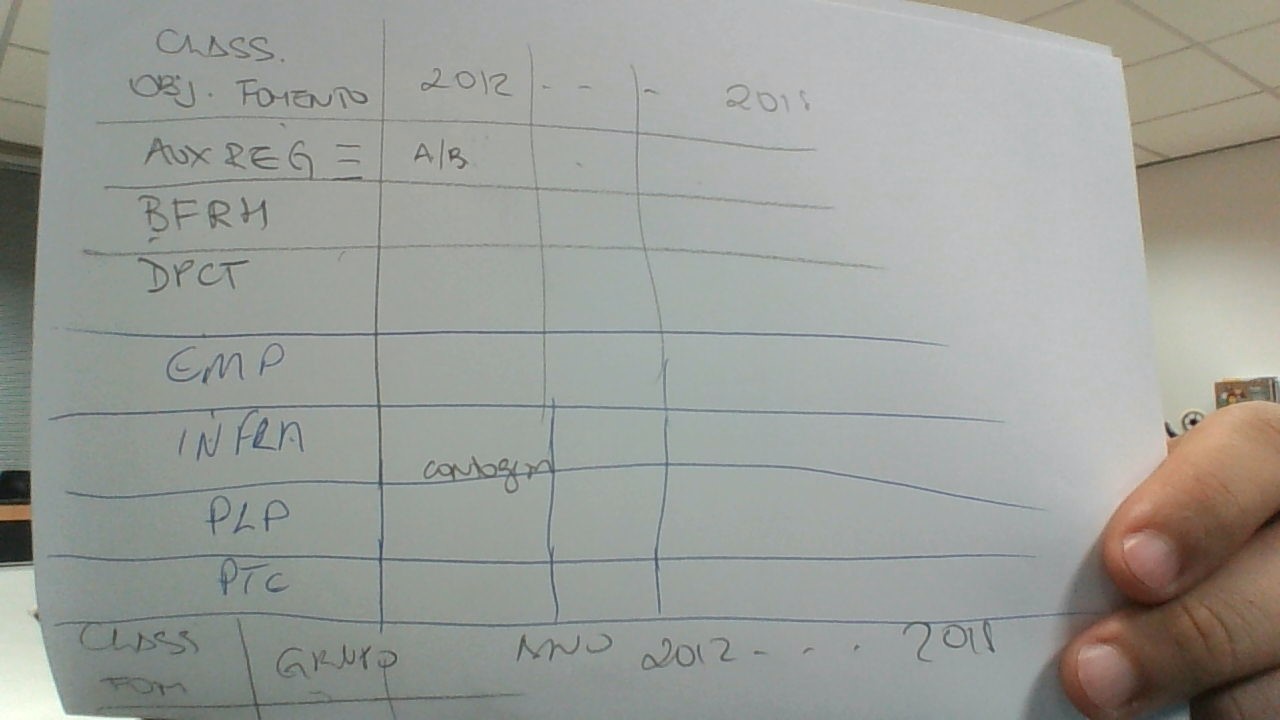 CLASS.
OBJ. FOMENTO 2012 - - - 2018
AUXREG = A/B
BFRH
DPCT
EMP
INFRA
contagem
PLP
PTC
CLASS GRUPO ANO 2012 - . . . 2018
FOM